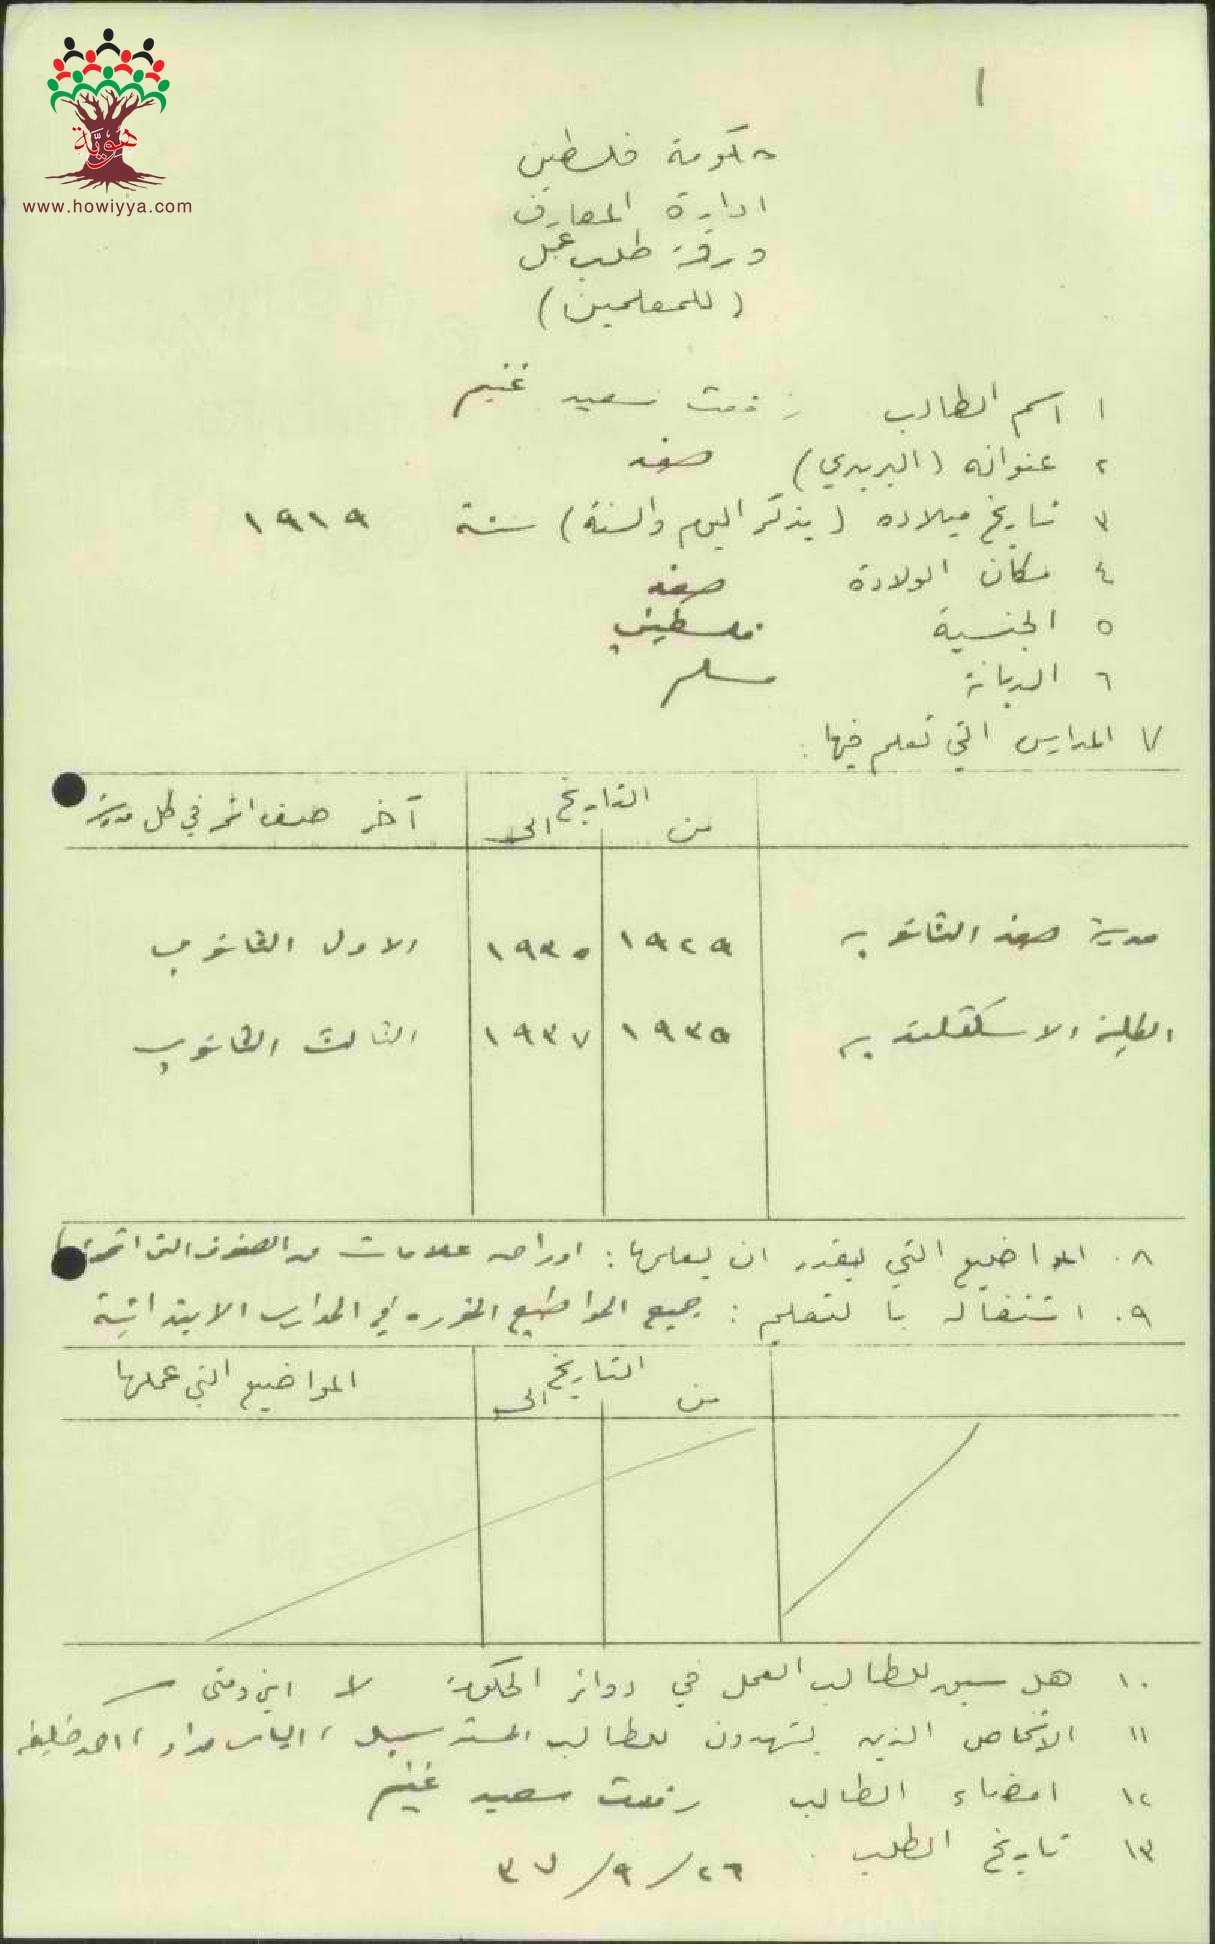 هوية
www.howiyya.com
١
حكومة فلسطين
ادارة المعارف
ورقة طلب عمل
(للمعلمين)
١ اسم الطالب رفعت سعيد غنيم
٢ عنوانه (البريدي) صفد
٣ تاريخ ميلاده (يذكر اليوم والسنة) سنة ١٩١٩
٤ مكان الولادة صفد
٥ الجنسية فلسطيني
٦ الديانة مسلم
٧ المدارس التي تعلم فيها:
التاريخ
من الى آخر صف اتمه في كل مدرسة
مدرسة صفد الثانويه ١٩٢٩ ١٩٣٥ الاول الثانوي
الكلية الاسكتلنديه ١٩٣٥ ١٩٣٧ الثالث الثانوي
٨. المواضيع التي يقدر ان يعلمها: اوراق علامات من الصفوف التي اتمها
٩. اشتغاله بالتعليم: جميع المواضيع المقرره في المدارس الابتدائية
التاريخ
من الى المواضيع التي عملها
١٠ هل سبق للطالب العمل في دوائر الحكومة لا اين ومتى
١١ الاشخاص الذين يشهدون للطالب المستر سمبل، الياس حداد، احمد خليفه
١٢ امضاء الطالب رفعت سعيد غنيم
١٣ تاريخ الطلب ٢٦/٩/٣٧